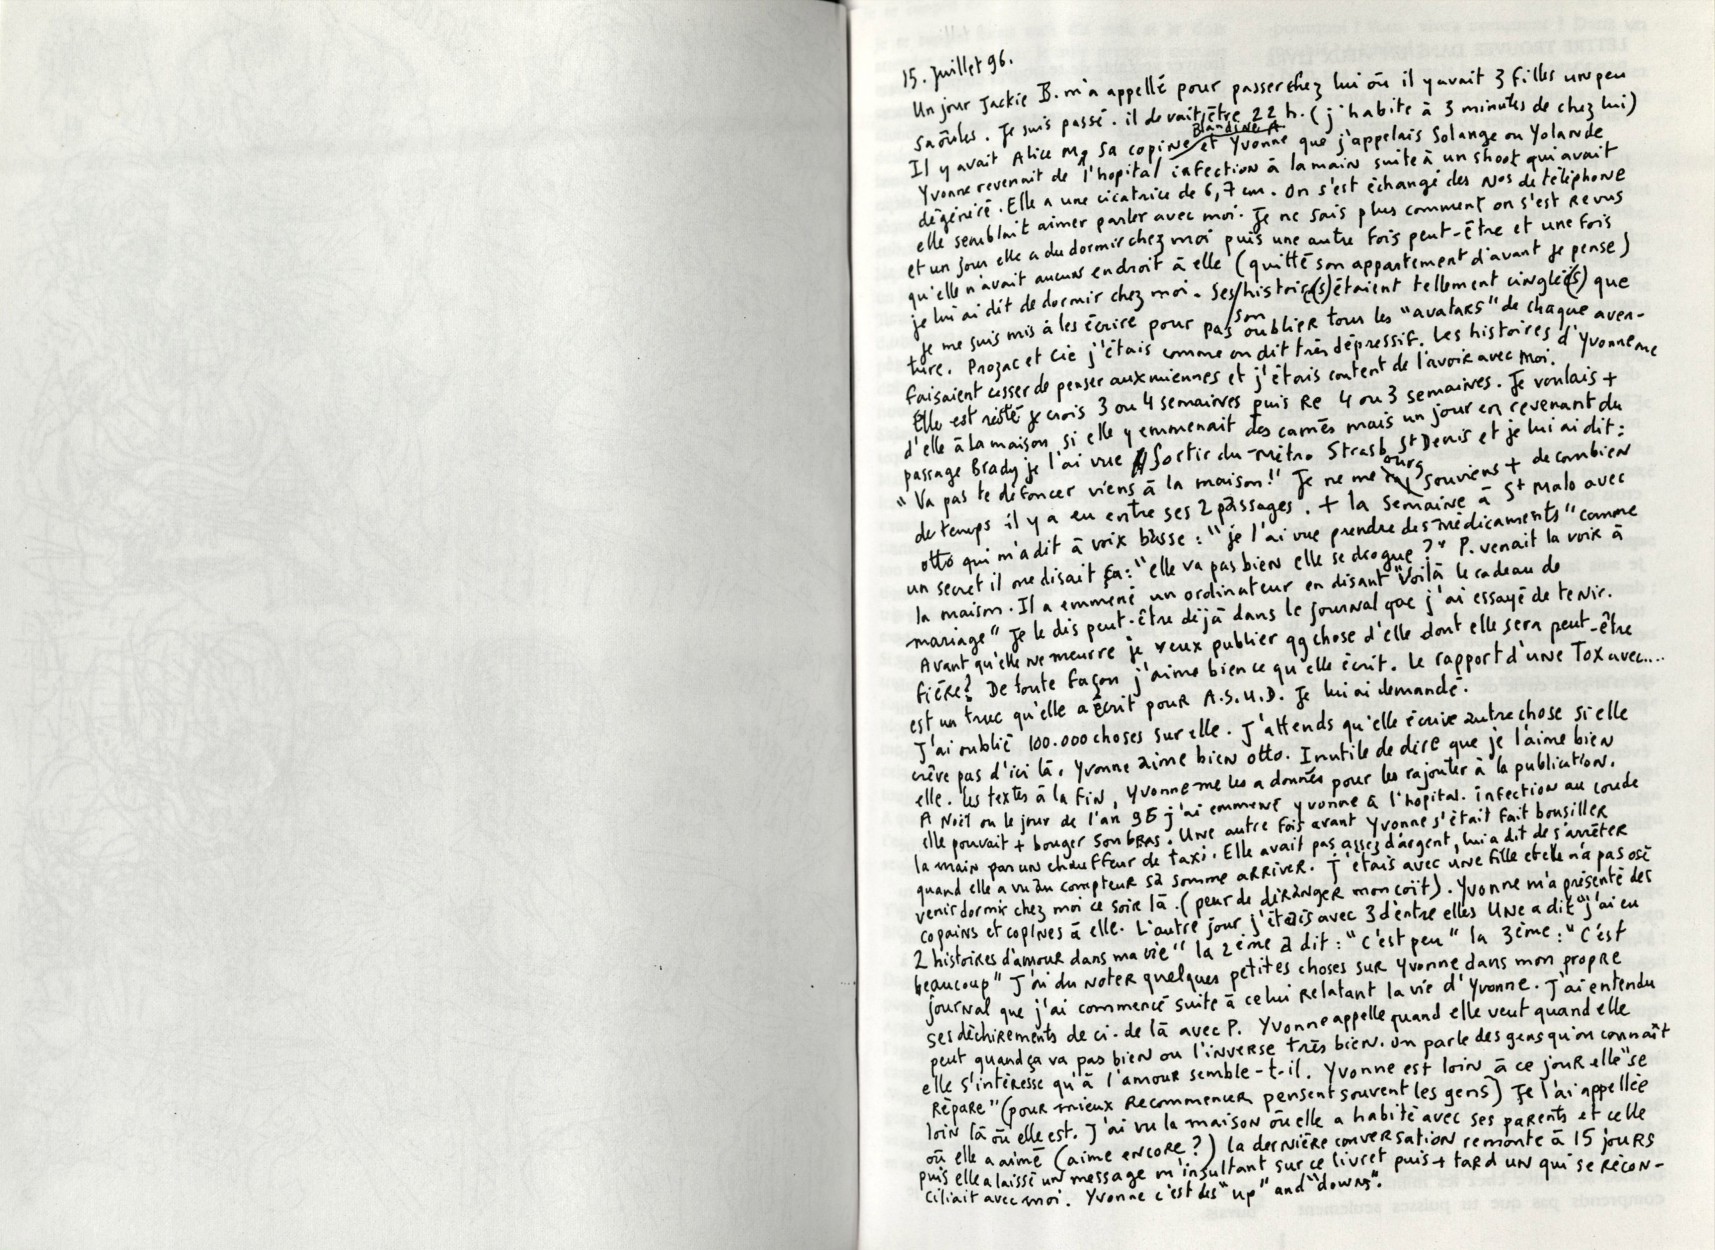 15. Juillet 96.
Un jour Jackie B. m'a appellé pour passer chez lui où il y avait 3 filles un peu
saoûles. Je suis passé. il devait être 22 h. (j'habite à 3 minutes de chez lui)
Il y avait Alice M, sa copine Blandine A. et Yvonne que j'appelais Solange ou Yolande
Yvonne revenait de l'hopital infection à la main suite à un shoot qui avait
dégénéré. Elle a une cicatrice de 6,7 cm. On s'est échangé des Nos de téléphone
elle semblait aimer parler avec moi. Je ne sais plus comment on s'est revus
et un jour elle a du dormir chez moi puis une autre fois peut-être et une fois
qu'elle n'avait aucun endroit à elle (quitté son appartement d'avant je pense)
je lui ai dit de dormir chez moi. Ses/son histoire(s) étaient tellement cinglée(s) que
je me suis mis à les écrire pour pas oublier tous les "avatars" de chaque aven-
ture. Prozac et Cie j'étais comme on dit très dépressif. Les histoires d'Yvonne me
faisaient cesser de penser aux miennes et j'étais content de l'avoir avec moi.
Elle est resté je crois 3 ou 4 semaines puis Re 4 ou 3 semaines. Je voulais +
d'elle à la maison si elle y emmenait des camés mais un jour en revenant du
passage Brady je l'ai vue sortir du métro Strasbourg St Denis et je lui ai dit :
"Va pas te défoncer viens à la maison!" Je ne me souviens + de combien
de temps il y a eu entre ses 2 passages. + la semaine à St Malo avec
otto qui m'a dit à voix basse : "je l'ai vue prendre des médicaments" comme
un secret il me disait ça : "elle va pas bien elle se drogue ?" P. venait la voir à
la maison. Il a emmené un ordinateur en disant "voilà le cadeau de
mariage" Je le dis peut-être déjà dans le journal que j'ai essayé de tenir.
Avant qu'elle ne meurre je veux publier qq chose d'elle dont elle sera peut-être
fière? De toute façon j'aime bien ce qu'elle écrit. Le rapport d'une Tox avec....
est un truc qu'elle a écrit pour A.S.U.D. Je lui ai demandé.
J'ai oublié 100.000 choses sur elle. J'attends qu'elle écrive autre chose si elle
crêve pas d'ici là. Yvonne aime bien otto. Inutile de dire que je l'aime bien
elle. Les textes à la fin, Yvonne me les a donnés pour les rajouter à la publication.
A Noël ou le jour de l'an 95 j'ai emmené yvonne à l'hopital. infection au coude
elle pouvait + bouger son bras. Une autre fois avant Yvonne s'était fait bousiller
la main par un chauffeur de taxi. Elle avait pas assez d'argent, lui a dit de s'arrêter
quand elle a vu au compteur sa somme arriver. J'étais avec une fille et elle n'a pas osé
venir dormir chez moi ce soir là. (peur de déranger mon coït). Yvonne m'a présenté des
copains et copines à elle. L'autre jour j'étais avec 3 d'entre elles Une a dit "j'ai eu
2 histoires d'amour dans ma vie" la 2ème a dit : "c'est peu" la 3ème : "c'est
beaucoup" J'ai du noter quelques petites choses sur Yvonne dans mon propre
journal que j'ai commencé suite à celui relatant la vie d'Yvonne. J'ai entendu
ses déchirements de ci-de là avec P. Yvonne appelle quand elle veut quand elle
peut quand ça va pas bien ou l'inverse très bien. on parle des gens qu'on connaît
elle s'intéresse qu'à l'amour semble-t-il. Yvonne est loin à ce jour elle "se
répare" (pour mieux recommencer pensent souvent les gens) Je l'ai appellée
loin là où elle est. J'ai vu la maison où elle a habité avec ses parents et celle
où elle a aimé (aime encore ?) la dernière conversation remonte à 15 jours
puis elle a laissé un message m'insultant sur ce livret puis + tard un qui se récon-
ciliait avec moi. Yvonne c'est des "up" and "downs".